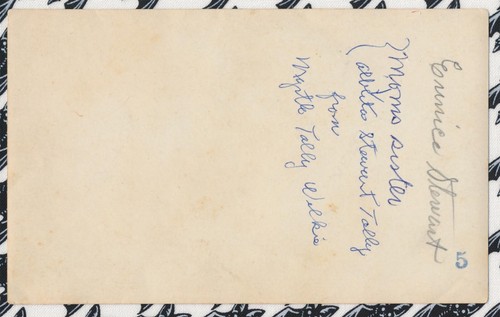 Eunice Stewart
Moms sister
Stewart Tally
from
Myrtle Tally Wilkie
5